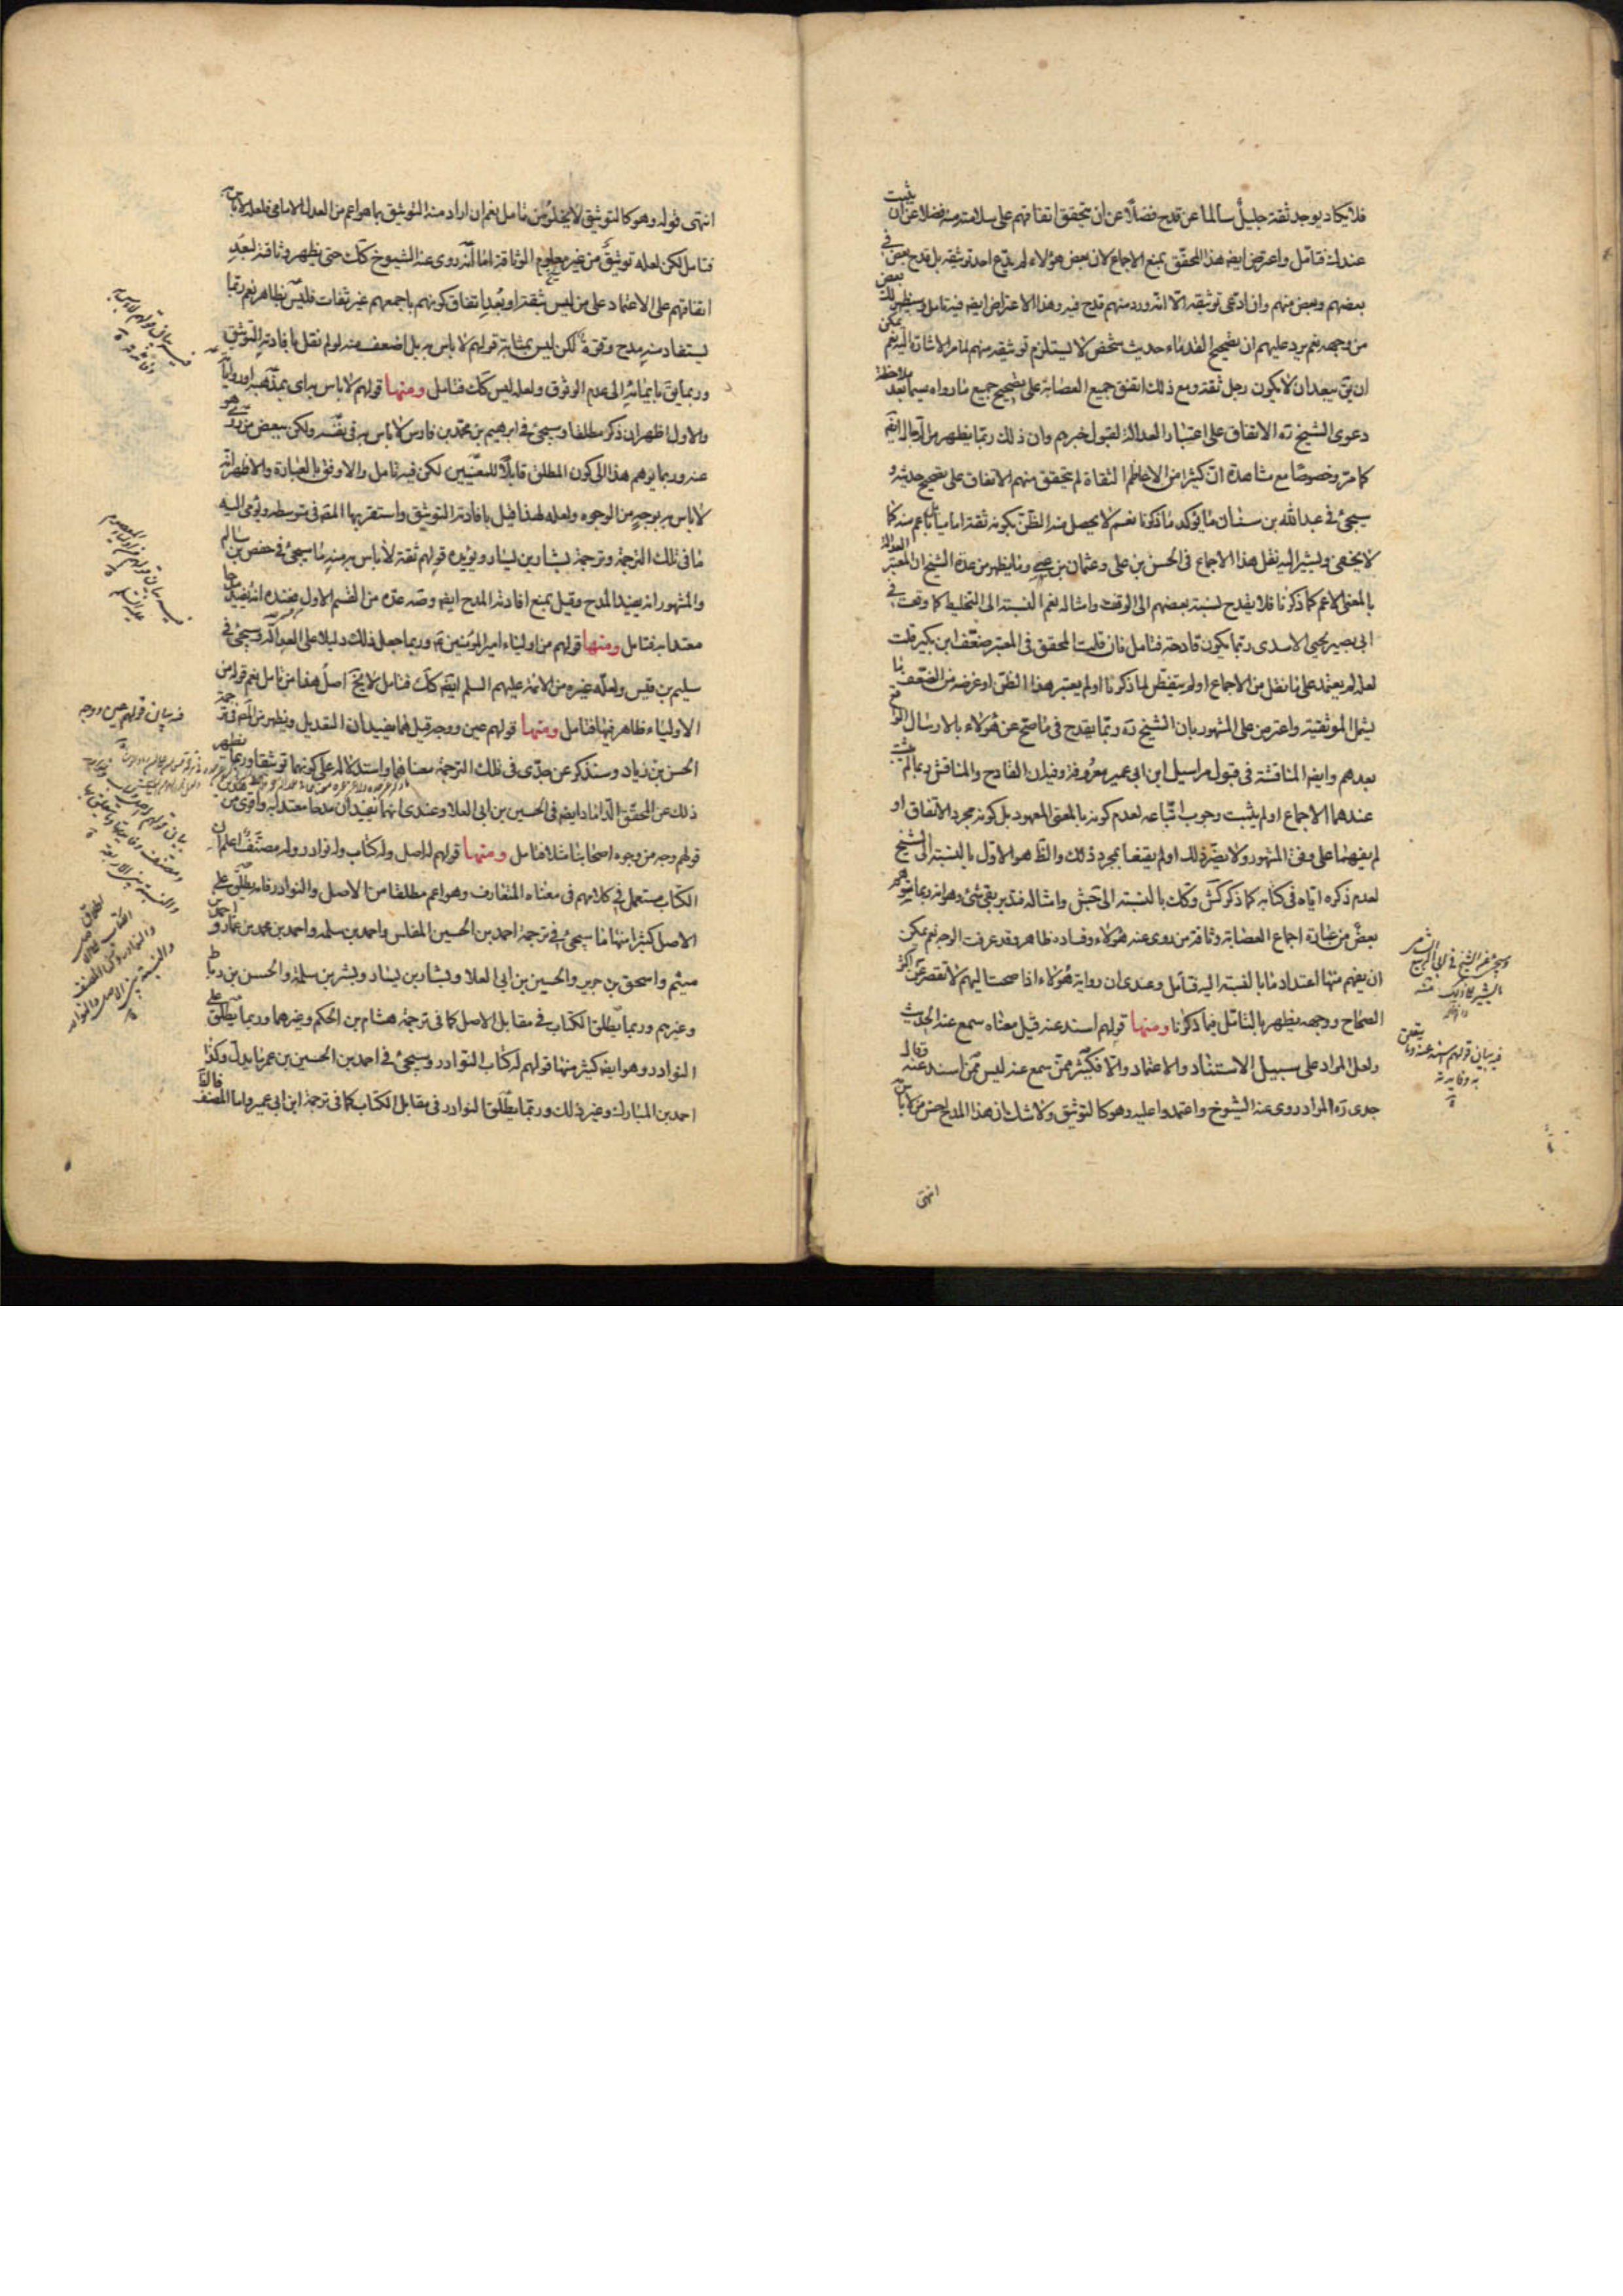 فلا يكاد يوجد ثقة جليل سالما عن قدح فضلا عن ان يتحقق اتفاقهم على سلامته منه فضلا عن ان يثبت
عندك فتامل واعترض ايضا هذا المحقق بمنع الاجماع لان بعض هؤلاء لم يدع احد توثيقه بل قدح بعض في
بعضهم وبعض منهم وان ادعى توثيقه الا انه ورد منهم قدح فيه وهذا الاعتراض ايضا فيه تامل وسيظهر لك بعض
من وجهه نعم يرد عليهم ان تصحيح القدماء حديث شخص لا يستلزم توثيقه منهم لما مر الاشارة اليه نعم يمكن
ان يق يبعد ان لا يكون رجل ثقة ومع ذلك اتفق جميع العصابة على تصحيح جميع ما رواه سيما بعد ملاحظة
دعوى الشيخ ره الاتفاق على اعتبار العدالة لقبول خبرهم وان ذلك ربما يظهر من الرجال ايضا
كما مر وخصوصا مع مشاهدة ان كثيرا من الاعاظم الثقاة لم يتحقق منهم الاتفاق على تصحيح حديثه و
سيجئ في عبد الله بن سنان ما يؤكد ما ذكرنا نعم لا يحصل منه الظن بكونه ثقة اماميا بل بأعم منه كما
لا يخفى ويشير اليه نقل هذا الاجماع في الحسن بن علي وعثمان بن عيسى وما يظهر من عدة الشيخ ان المعتبر العدالة
بالمعنى الاعم كما ذكرنا فلا يقدح نسبة بعضهم الى الوقف وامثاله نعم النسبة الى التخليط كما وقعت في
ابي بصير يحيى الاسدي ربما يكون قادحة فتامل فان قلت المحقق في المعتبر ضعف ابن بكير قلت
لعله لم يعتمد على ما نقل من الاجماع او لم يتفطن لما ذكرنا او لم يعتبر هذا الظن او غرضه من الضعف ما
يشمل الموثقية واعترض على المشهور بان الشيخ ره ربما يقدح في ما صح عن هؤلاء بالارسال الواقع
بعدهم وايضا المناقشة في قبول مراسيل ابن ابي عمير معروفة وفيه ان القادح والمناقش ربما لم يثبت
عندهما الاجماع او لم يثبت وجوب اتباعه لعدم كونه بالمعنى المعهود بل كونه مجرد الاتفاق او
لم يفهما على وفق المشهور ولا يضر ذلك او لم يقنعا بمجرد ذلك والظ هو الاول بالنسبة الى الشيخ
لعدم ذكره اياه في كتابه كما ذكر كش وكك بالنسبة الى جش وامثاله فتدبر بقى شئ وهو انه ربما يتوهم
بعض من عبارة اجماع العصابة وثاقة من روى عنه هؤلاء وفساده ظاهر وقد عرفت الوجه نعم يمكن
ان يفهم منها اعتداد ما بالنسبة اليه فتأمل وعندي ان رواية هؤلاء اذا صحت اليهم لا تقصر عن اكثر
الصحاح ووجهه يظهر بالتامل فيما ذكرنا ومنها قولهم اسند عنه قيل معناه سمع عنه الحديث
ولعل المراد على سبيل الاستناد والاعتماد والا فكثير ممن سمع عنه ليس ممن اسند عنه وقال
جدي ره المراد روى عنه الشيوخ واعتمدوا عليه وهو كالتوثيق ولا شك ان هذا المدح احسن من لا باس
انتهى
فيه بيان قولهم اسند عنه وما يتعلق
به وفايدته
انتهى قوله وهو كالتوثيق لا يخلو من تامل نعم ان اراد منه التوثيق بما هو اعم من العدل الامامي فلعله لا باس به
فتامل لكن لعله توثيق من غير معلوم الوثاقة اما انه روى عنه الشيوخ كك حتى يظهر وثاقته لبعد
اتفاقهم على الاعتماد على من ليس بثقة او بعد اتفاق كونهم باجمعهم غير ثقات فليس بظاهر نعم ربما
يستفاد منه مدح وقوة لكن ليس بمثابة قولهم لا باس به بل اضعف منه لو لم نقل بافادته التوثيق
وربما يق بايمائه الى عدم الوثوق ولعله ليس كك فتامل ومنها قولهم لا باس به اي بمذهبه او رواياته
والاول اظهر ان ذكر مطلقا وسيجئ في ابرهيم بن محمد بن فارس لا باس به في نفسه ولكن ببعض من روى هو
عنه وربما يوهم هذا الى كون المطلق قابلا للمعنيين لكن فيه تامل والاوفق بالعبارة والاظهر انه
لا باس به بوجه من الوجوه ولعله لهذا قيل بافادته التوثيق واستقربها المص في متوسطه ويؤمى اليه
ما في تلك الترجمة وترجمة بشار بن يسار ويؤيده قولهم ثقة لا باس به منه ما سيجئ في حفص بن سالم
والمشهور انه يفيد المدح وقيل بمنع افادته المدح ايضا وصه عده من القسم الاول فعنده انه يفيد مدحا
معتدا به فتامل ومنها قولهم من اولياء امير المؤمنين ع وربما جعل ذلك دليلا على العدالة وسيجئ في
سليم بن قيس ولعله غيره من الائمة عليهم السلم ايضا كك فتامل لا يخ اصل هذا من تامل نعم قولهم من
الاولياء ظاهر فيها فتامل ومنها قولهم عين ووجه قيل هما يفيدان التعديل ويظهر من المص في ترجمة
الحسن بن زياد وسنذكر عن جدي في تلك الترجمة معناهما واستدلاله على كونهما توثيقا وربما يظهر
ذلك عن المحقق الداماد ايضا في الحسين بن ابي العلا وعندي انهما يفيدان مدحا معتدا به واقوى من
قولهم وجه من وجوه اصحابنا مثلا فتامل ومنها قولهم له اصل وله كتاب وله نوادر وله مصنف اعلم ان
الكتاب مستعمل في كلامهم في معناه المتعارف وهو اعم مطلقا من الاصل والنوادر فانه يطلق على
الاصل كثيرا منها ما سيجئ في ترجمة احمد بن الحسين المفلس واحمد بن سلمه واحمد بن محمد بن عمار و
ميثم واسحق بن جرير والحسين بن ابي العلا وبشار بن يسار وبشر بن سلمة والحسن بن رباط
وغيرهم وربما يطلق الكتاب في مقابل الاصل كما في ترجمة هشام بن الحكم وغيرهما وربما يطلق على
النوادر وهو ايضا كثير منها قولهم له كتاب النوادر وسيجئ في احمد بن الحسين بن عمر ما يدل وكذا
احمد بن المبارك وغير ذلك وربما يطلق النوادر في مقابل الكتاب كما في ترجمة ابن ابي عمير واما المصنف فالظ
فيه بيان قولهم عين ووجه